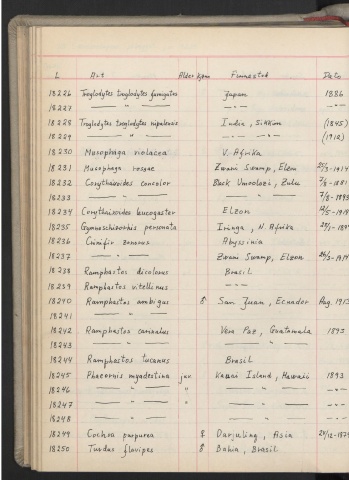 L Art Alder Kjønn Finnested Dato
18226 Troglodytes troglodytes fumigatus Japan 1886
18227 — " — — " —
18228 Troglodytes troglodytes nipalensis India, Sikkim (1845)
18229 — " — — " — (1912)
18230 Musophaga violacea V. Afrika
18231 Musophaga rossae Zwani Swamp, Elzon
18232 Corythaixoides concolor Back Umvolozi, Zulu
18233 — " — — " —
18234 Corythaixoides leucogaster Elzon
18235 Gymnoschizorhis personata Iringa, N. Afrika
18236 Crinifer zonurus Abyssinia
18237 — " — Zwani Swamp, Elzon
18238 Ramphastos dicolorus Brasil
18239 Ramphastos vitellinus — " —
18240 Ramphastos ambigus ♂ San Juan, Ecuador Aug. 1913
18241 — " —
18242 Ramphastos carinatus Vera Paz, Guatemala 1893
18243 — " — — " — — " —
18244 Ramphastos tucanus Brasil
18245 Phaeornis myadestina juv. Kauai Island, Hawaii 1893
18246 — " — " — " — — " —
18247 — " — " — " — — " —
18248 — " — — " — — " —
18249 Cochoa purpurea ♀ Darjuling, Asia
18250 Turdus flavipes ♂ Bahia, Brasil